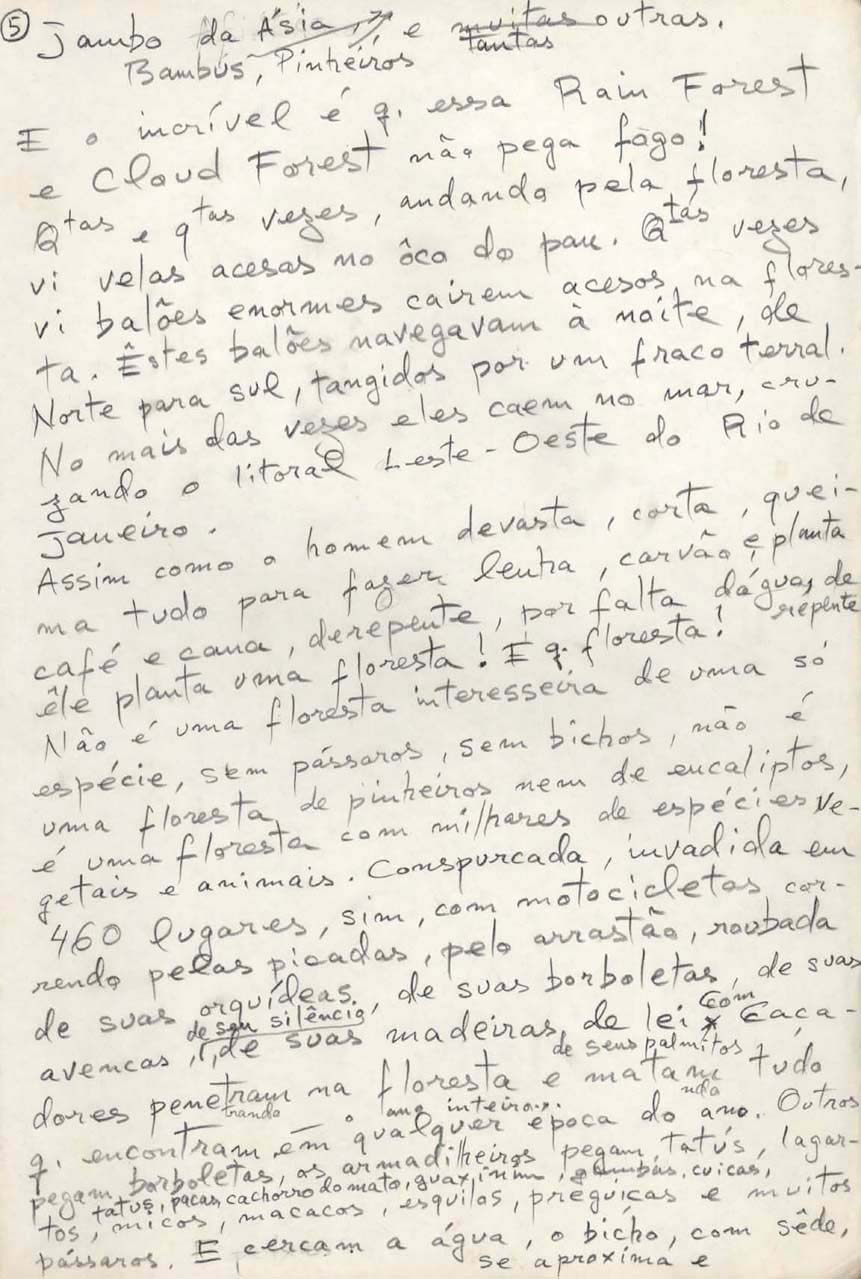 ⑤ Jambo da Ásia, e muitas outras.
Bambus, Pinheiros tantas
E o incrível é q. essa Rain Forest
e Cloud Forest não pega fogo!
Qtas e qtas vezes, andando pela floresta,
vi velas acesas no ôco do pau. Qtas vezes
vi balões enormes cairem acesos na flores-
ta. Êstes balões navegavam à noite, de
Norte para sul, tangidos por um fraco terral.
No mais das vezes eles caem no mar, cru-
zando o litoral Leste-Oeste do Rio de
Janeiro.
Assim como o homem devasta, corta, quei-
ma tudo para fazer lenha, carvão, e planta
café e cana, derepente, por falta dágua, de
repente
êle planta uma floresta! E q. floresta!
Não é uma floresta interesseira de uma só
espécie, sem pássaros, sem bichos, não é
uma floresta de pinheiros nem de eucaliptos,
é uma floresta com milhares de espécies ve-
getais e animais. Conspurcada, invadida em
460 lugares, sim, com motocicletas cor-
rendo pelas picadas, pelo arrastão, roubada
de suas orquídeas, de suas borboletas, de suas
avencas, de seu silêncio, de suas madeiras de lei com Caça-
de seus palmitos
dores penetram na floresta e matam tudo
trando o ano inteiro.. ndo
q. encontram em qualquer epoca do ano. Outros
pegam borboletas, os armadilheiros pegam tatús, lagar-
tatus, pacas, cachorro do mato, guaxinim, gambás, cuicas,
tos, micos, macacos, esquilos, preguiças e muitos
pássaros. E cercam a água, o bicho, com sêde,
se aproxima e